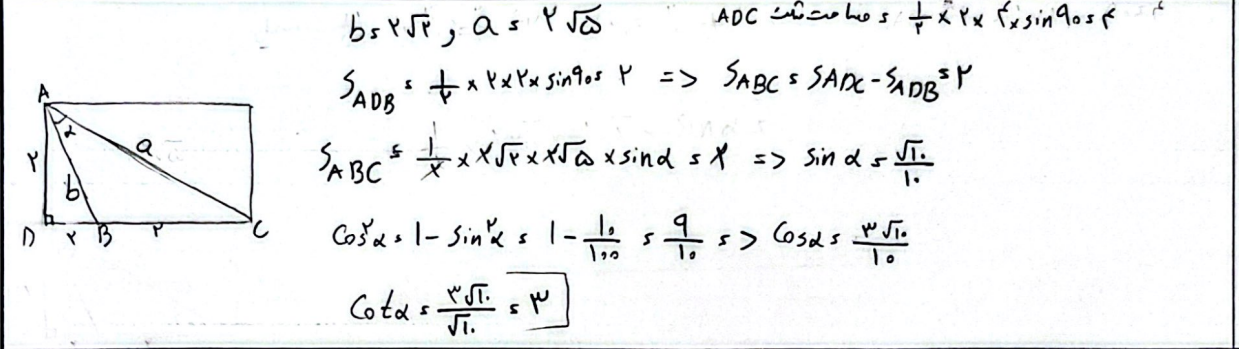 b = ۲√۲ , a = ۲√۵ مساحت مثلث ADC = ۱/۲ × ۲ × ۴ × sin۹۰ = ۴
S_ADB = ۱/۲ × ۲ × ۲ × sin۹۰ = ۲ => S_ABC = S_ADC - S_ADB = ۲
S_ABC = ۱/۲ × ۲√۲ × ۲√۵ × sin α = ۲ => sin α = √۱۰/۱۰
Cos²α = ۱ - Sin²α = ۱ - ۱۰/۱۰۰ = ۹/۱۰ => Cos α = ۳√۱۰/۱۰
Cot α = ۳√۱۰/√۱۰ = ۳
A
α
a
۲
b
D ۲ B ۲ C